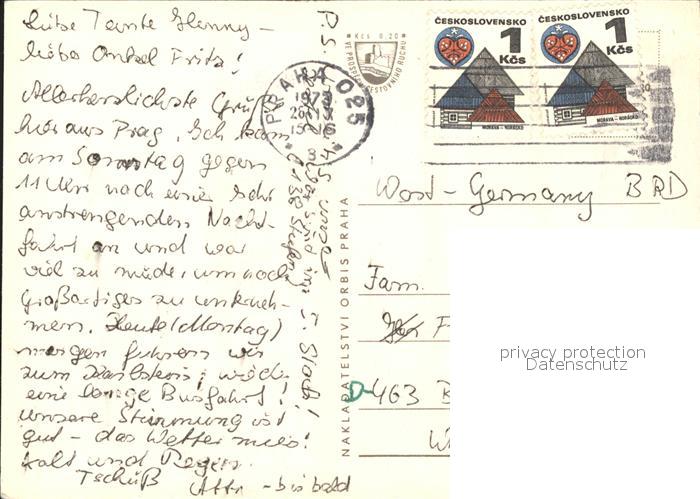 Liebe Tante Henny –
liebe Onkel Fritz!
Allerherzlichste Grüße
hier aus Prag. Ich kam
am Sonntag gegen
11 Uhr nach einer sehr
anstrengenden Nacht-
fahrt an und war
viel zu müde, um noch
Großartiges zu unterneh-
men. Heute (Montag)
morgen fuhren wir
zum
eine lange Busfahrt!
unsere Stimmung ist
gut – das Wetter mies!
kalt und Regen.
Tschüß – bis bald
P.S.
wir sind im 5. Stock!
Kčs 0,20
VE PROSPĚCH CESTOVNÍHO RUCHU
PRAHA 025
ČESKOSLOVENSKO
1 Kčs
MORAVA - HORÁCKO
ČESKOSLOVENSKO
1 Kčs
MORAVA - HORÁCKO
NAKLADATELSTVÍ ORBIS PRAHA
West-Germany BRD
Fam.
F
D-463 B
W
privacy protection
Datenschutz